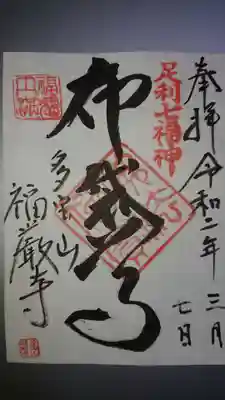 奉拝
令和二年
三月
七日
足利七福神
布袋尊
多宝山
福厳寺